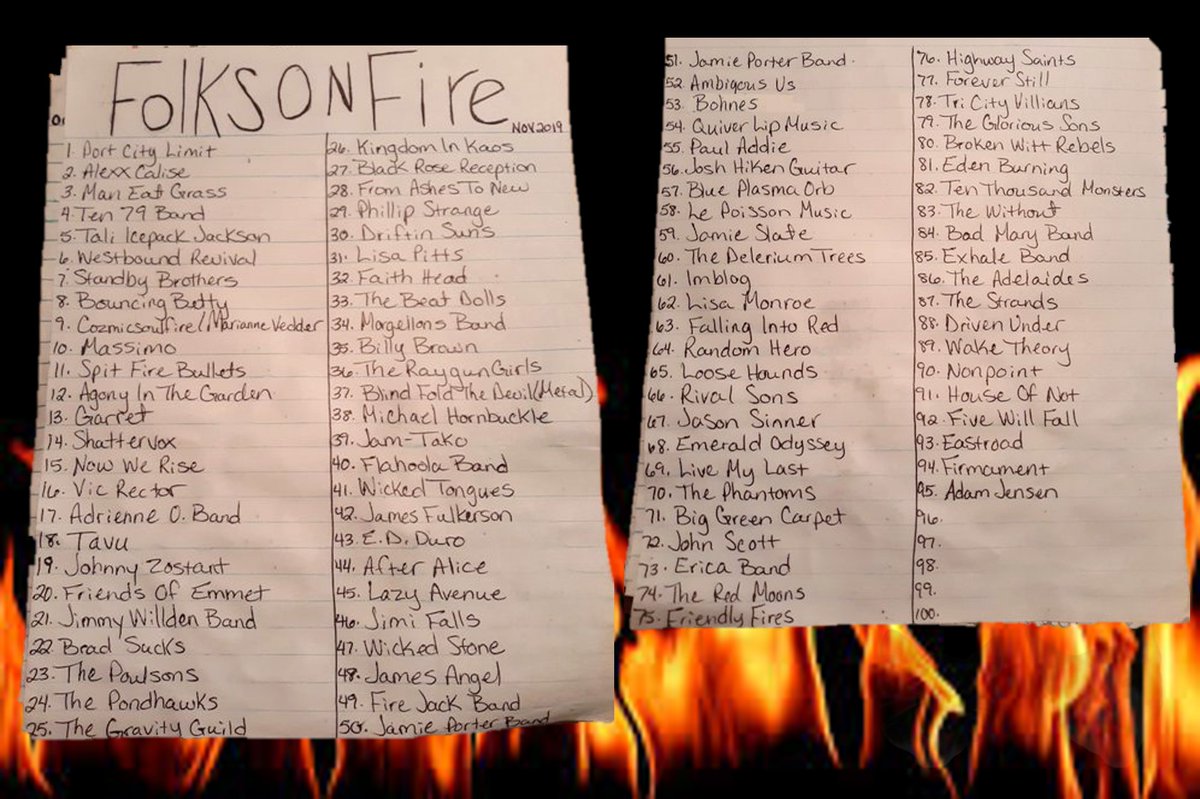 FolKSON Fire
NOV 2019
1. Port City Limit
2. Alexx Calise
3. Man Eat Grass
4. Ten 79 Band
5. Tali Icepack Jackson
6. Westbound Revival
7. Standby Brothers
8. Bouncing Betty
9. Cozmicsoulfire/Marianne Vedder
10. Massimo
11. Spit Fire Bullets
12. Agony In The Garden
13. Garret
14. Shattervox
15. Now We Rise
16. Vic Rector
17. Adrienne O. Band
18. Tavu
19. Johnny Zostant
20. Friends Of Emmet
21. Jimmy Willden Band
22. Brad Sucks
23. The Poulsons
24. The Pondhawks
25. The Gravity Guild
26. Kingdom In Kaos
27. Black Rose Reception
28. From Ashes To New
29. Phillip Strange
30. Driftin Suns
31. Lisa Pitts
32. Faith Head
33. The Beat Dolls
34. Morgellons Band
35. Billy Brown
36. The Raygun Girls
37. Blind Fold The Devil (Metal)
38. Michael Hornbuckle
39. Jam-Tako
40. Flahoola Band
41. Wicked Tongues
42. James Fulkerson
43. E.D. Duro
44. After Alice
45. Lazy Avenue
46. Jimi Falls
47. Wicked Stone
48. James Angel
49. Fire Jack Band
50. Jamie Porter Band
51. Jamie Porter Band.
52. Ambigous Us
53. Bohnes
54. Quiver Lip Music
55. Paul Addie
56. Josh Hiken Guitar
57. Blue Plasma Orb
58. Le Poisson Music
59. Jamie Slate
60. The Delerium Trees
61. Imblog
62. Lisa Monroe
63. Falling Into Red
64. Random Hero
65. Loose Hounds
66. Rival Sons
67. Jason Sinner
68. Emerald Odyssey
69. Live My Last
70. The Phantoms
71. Big Green Carpet
72. John Scott
73. Erica Band
74. The Red Moons
75. Friendly Fires
76. Highway Saints
77. Forever Still
78. Tri City Villians
79. The Glorious Sons
80. Broken Witt Rebels
81. Eden Burning
82. Ten Thousand Monsters
83. The Without
84. Bad Mary Band
85. Exhale Band
86. The Adelaides
87. The Strands
88. Driven Under
89. Wake Theory
90. Nonpoint
91. House Of Not
92. Five Will Fall
93. Eastroad
94. Firmament
95. Adam Jensen
96.
97.
98.
99.
100.